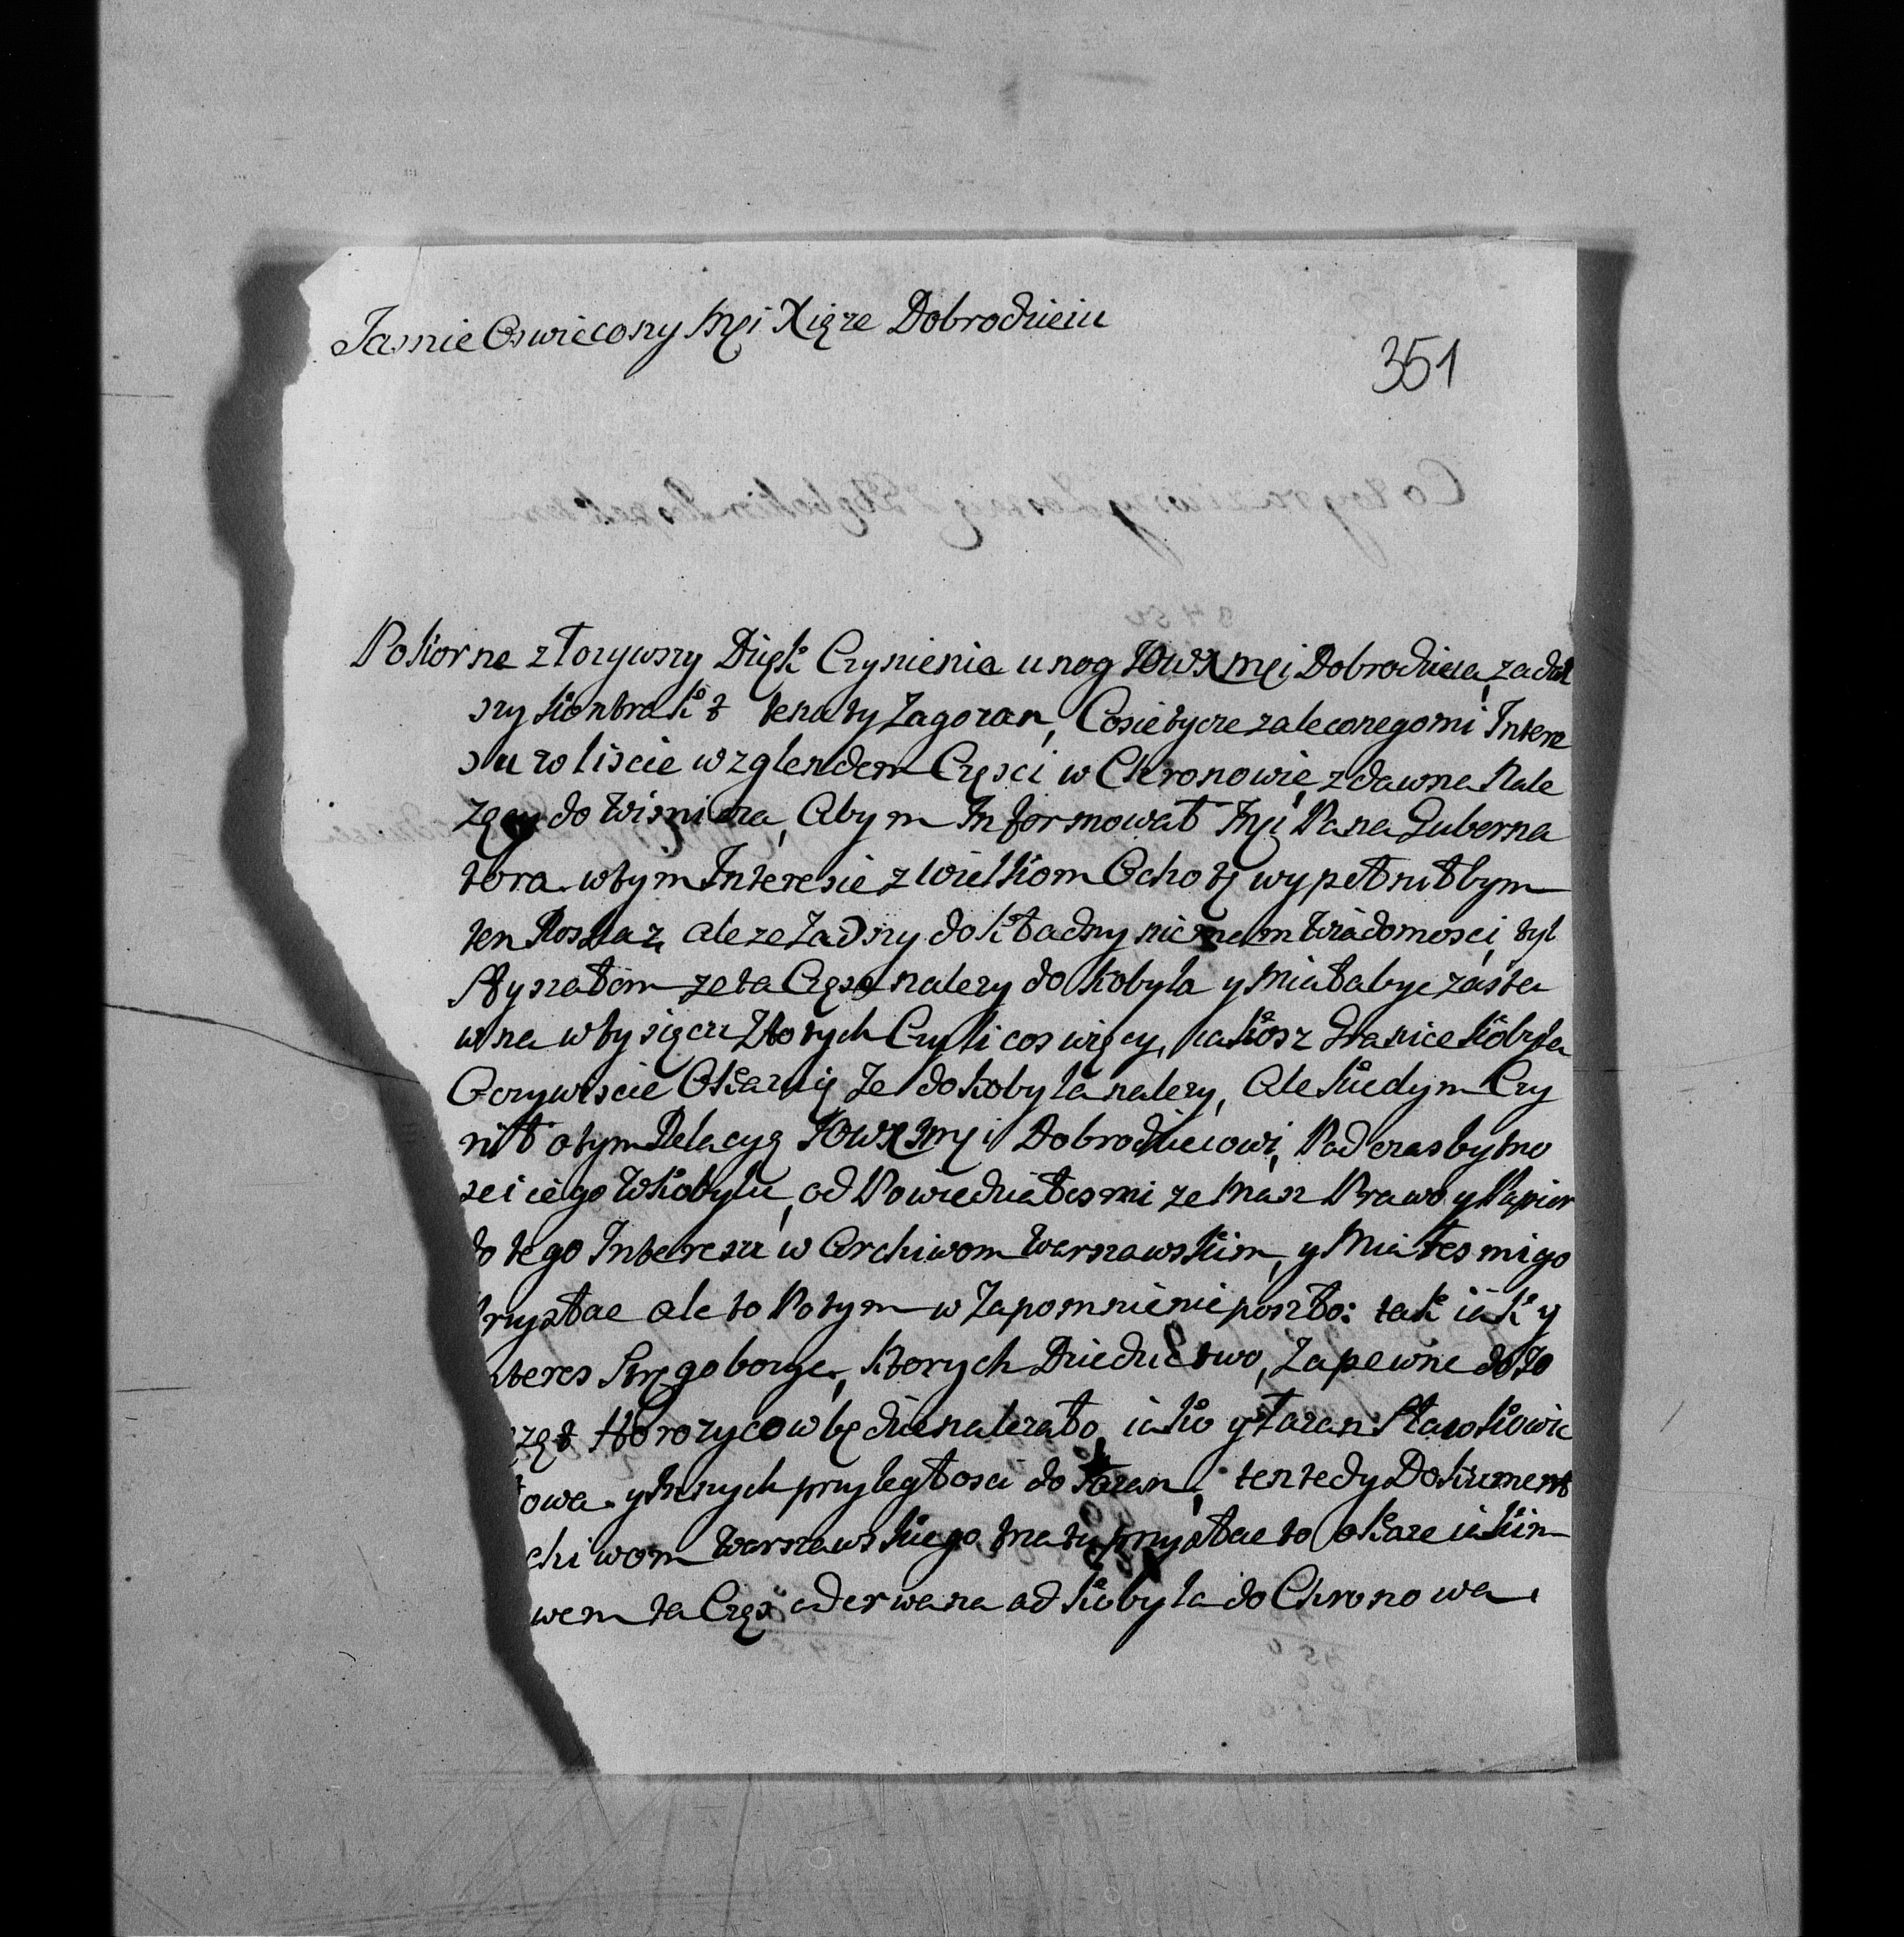 Jasnie Oswiecony Męi Xięze Dobrodzieiu
351
Pokorne złozywszy Dzięk Czynienia u nog JOWXMęi Dobrodzieia, za dal
szy Kontrakt tenuty Zagorzan, Co sie tycze zaleconego mi Intere
su w liscie wzglendem Częsci w Chronowie z dawna Nale
zący do Wisnicza, Abym Informował Imęi Pana Guberna
tora w tym Interesie z Wielkiom Ochotą wypełniłbym
ten Roskaz, ale ze Zadny dokładny nie mam Wiadomosci, tyl
słyszałom ze ta Częsc nalezy do Kobyla y Miała byc zasta
wna w tysiącu Złotych Czyli cos więcy, jakosz Granice Kobyla
Oczywiscie Okazuią Ze do Kobyla nalezy, Ale kiedym Czy
nił o tym Relacyą JOWXMęi Dobrodzieiowi, Pod czas bytno
sci iego w Kobylu, od Powiedziałes mi ze Masz Prawo y Papier
do tego Interesu w Archiwom Warszawskim, y Miałes mi go
Przysłac ale to Potym w Zapomnienie poszło: tak iak y
nteres Stręgoborzyc, Ktorych Dziedzictwo, Zapewne do Xo
ząt Storozycow będzie nalezało, iako y Łazan Sławkowic
owa y Innych przyległosci do Łazan, ten tedy Dokument
chiwom Warszawskiego Maty przysłac to okaze iakim
wem ta Częs oderwana od Kobyla do Chronowa